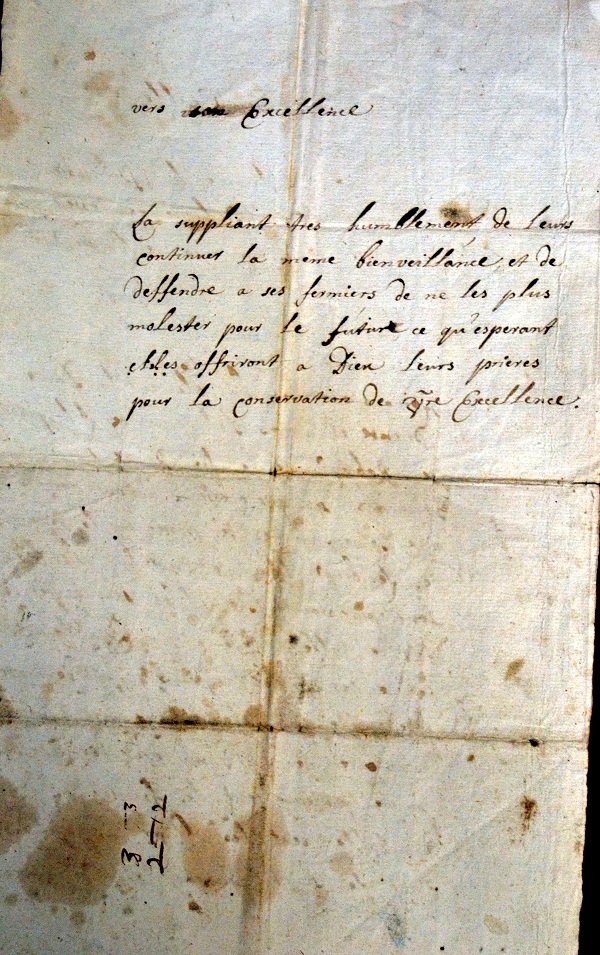 vers son Excellence
La suppliant tres humblement de leurs
continuer la meme bienveillance, et de
deffendre a ses fermiers de ne les plus
molester pour le future ce qu'esperant
elles offriront a Dieu leurs prieres
pour la conservation de vre Excellence.
3-3
2-12